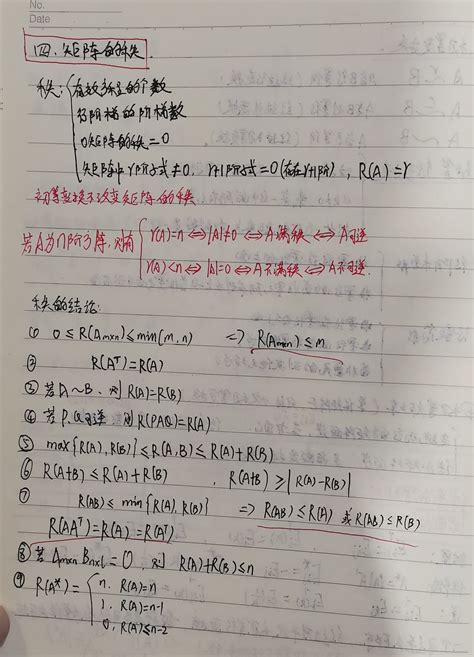 No.
Date
四. 矩阵的秩
秩: 有效方程的个数
行阶梯的阶梯数
0矩阵的秩=0
矩阵中r阶子式≠0, r+1阶子式=0(存在r+1阶), R(A)=r
初等变换不改变矩阵的秩
若A为n阶方阵, 则有
r(A)=n ⇔ |A|≠0 ⇔ A满秩 ⇔ A可逆
r(A)<n ⇔ |A|=0 ⇔ A不满秩 ⇔ A不可逆.
秩的结论:
① 0≤R(Am×n)≤min{m,n} ⇒ R(Am×n)≤m
② R(Aᵀ)=R(A)
③ 若A~B, 则R(A)=R(B)
④ 若P.Q可逆 则R(PAQ)=R(A)
⑤ max{R(A),R(B)}≤R(A,B)≤R(A)+R(B)
⑥ R(A+B)≤R(A)+R(B) , R(A+B)≥|R(A)-R(B)|
⑦ R(AB)≤min{R(A),R(B)} ⇒ R(AB)≤R(A) 或R(AB)≤R(B)
R(AAᵀ)=R(A)=R(Aᵀ)
⑧ 若Am×n Bn×l=0, 则 R(A)+R(B)≤n
⑨ R(A*)= n, R(A)=n
1, R(A)=n-1
0, R(A)≤n-2